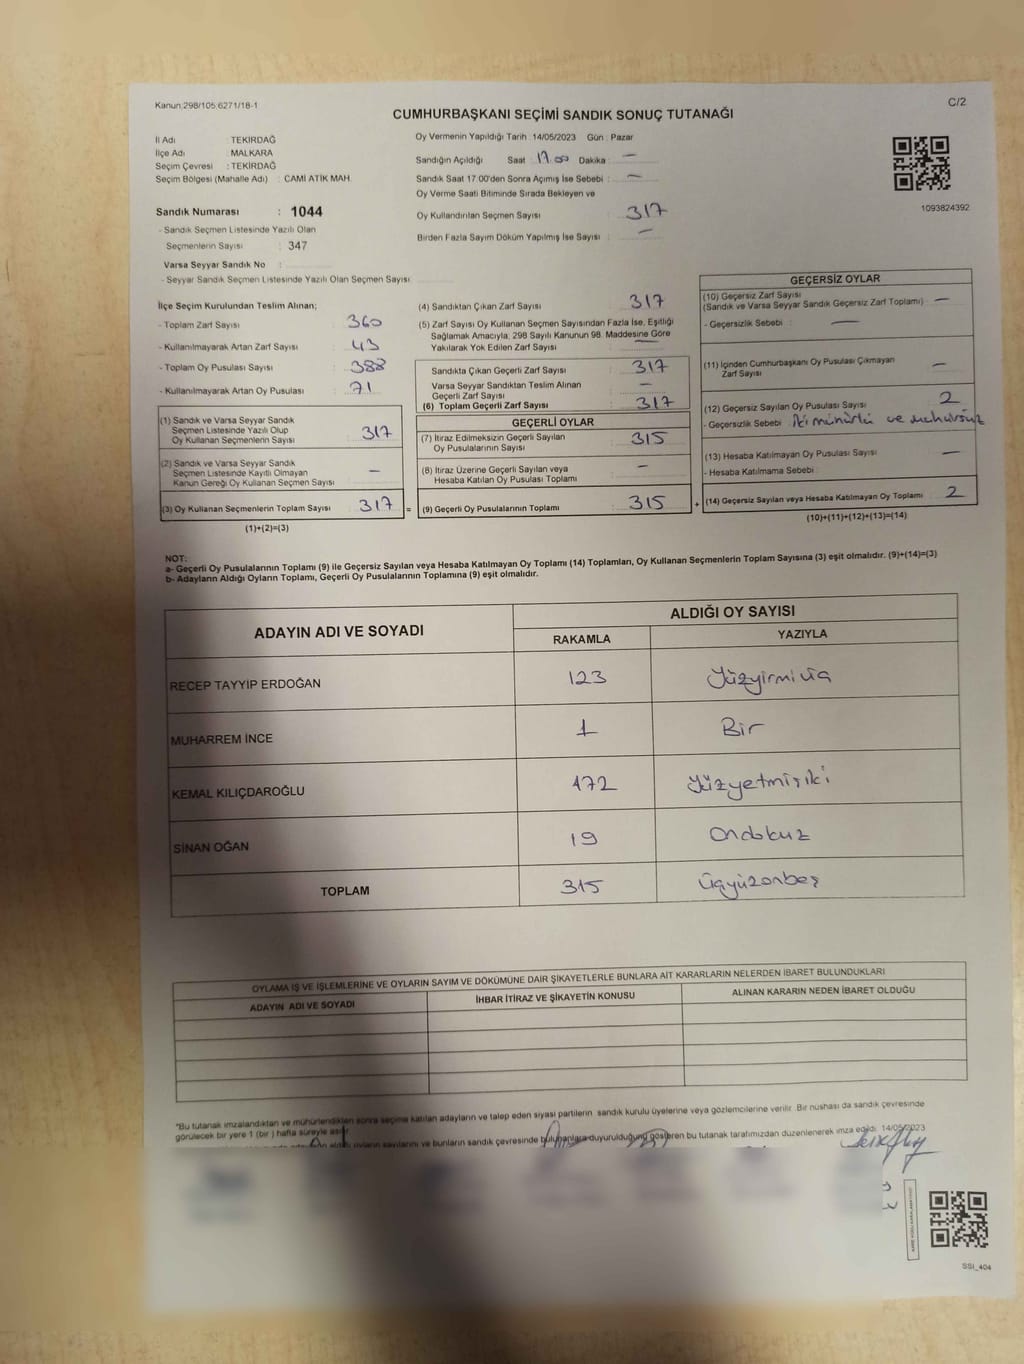 Kanun;298/105,6271/18-1
C/2
CUMHURBAŞKANI SEÇİMİ SANDIK SONUÇ TUTANAĞI
İl Adı : TEKİRDAĞ
İlçe Adı : MALKARA
Seçim Çevresi : TEKİRDAĞ
Seçim Bölgesi (Mahalle Adı) : CAMİ ATİK MAH.
Oy Vermenin Yapıldığı Tarih : 14/05/2023 Gün : Pazar
Sandığın Açıldığı Saat : 17.00 Dakika : —
Sandık Saat 17:00'den Sonra Açımış İse Sebebi : —
Oy Verme Saati Bitiminde Sırada Bekleyen ve
Oy Kullandırılan Seçmen Sayısı : 317
Birden Fazla Sayım Döküm Yapılmış İse Sayısı : —
1093824392
Sandık Numarası : 1044
- Sandık Seçmen Listesinde Yazılı Olan
Seçmenlerin Sayısı : 347
Varsa Seyyar Sandık No :
- Seyyar Sandık Seçmen Listesinde Yazılı Olan Seçmen Sayısı :
İlçe Seçim Kurulundan Teslim Alınan;
- Toplam Zarf Sayısı : 360
- Kullanılmayarak Artan Zarf Sayısı : 43
- Toplam Oy Pusulası Sayısı : 388
- Kullanılmayarak Artan Oy Pusulası : 71
(1) Sandık ve Varsa Seyyar Sandık
Seçmen Listesinde Yazılı Olup
Oy Kullanan Seçmenlerin Sayısı : 317
(2) Sandık ve Varsa Seyyar Sandık
Seçmen Listesinde Kayıtlı Olmayan
Kanun Gereği Oy Kullanan Seçmen Sayısı : —
(3) Oy Kullanan Seçmenlerin Toplam Sayısı : 317 =
(1)+(2)=(3)
(4) Sandıktan Çıkan Zarf Sayısı : 317
(5) Zarf Sayısı Oy Kullanan Seçmen Sayısından Fazla İse, Eşitliği
Sağlamak Amacıyla; 298 Sayılı Kanunun 98. Maddesine Göre
Yakılarak Yok Edilen Zarf Sayısı : —
Sandıkta Çıkan Geçerli Zarf Sayısı : 317
Varsa Seyyar Sandıktan Teslim Alınan
Geçerli Zarf Sayısı : —
(6) Toplam Geçerli Zarf Sayısı : 317
GEÇERLİ OYLAR
(7) İtiraz Edilmeksizin Geçerli Sayılan
Oy Pusulalarının Sayısı : 315
(8) İtiraz Üzerine Geçerli Sayılan veya
Hesaba Katılan Oy Pusulası Toplamı : —
(9) Geçerli Oy Pusulalarının Toplamı : 315 +
GEÇERSİZ OYLAR
(10) Geçersiz Zarf Sayısı
(Sandık ve Varsa Seyyar Sandık Geçersiz Zarf Toplamı) : —
- Geçersizlik Sebebi : —
(11) İçinden Cumhurbaşkanı Oy Pusulası Çıkmayan
Zarf Sayısı : —
(12) Geçersiz Sayılan Oy Pusulası Sayısı : 2
- Geçersizlik Sebebi : iki mühürlü ve mühürsüz
(13) Hesaba Katılmayan Oy Pusulası Sayısı : —
- Hesaba Katılmama Sebebi :
(14) Geçersiz Sayılan veya Hesaba Katılmayan Oy Toplamı : 2
(10)+(11)+(12)+(13)=(14)
NOT:
a- Geçerli Oy Pusulalarının Toplamı (9) ile Geçersiz Sayılan veya Hesaba Katılmayan Oy Toplamı (14) Toplamları, Oy Kullanan Seçmenlerin Toplam Sayısına (3) eşit olmalıdır. (9)+(14)=(3)
b- Adayların Aldığı Oyların Toplamı, Geçerli Oy Pusulalarının Toplamına (9) eşit olmalıdır.
ADAYIN ADI VE SOYADI
ALDIĞI OY SAYISI
RAKAMLA YAZIYLA
RECEP TAYYİP ERDOĞAN 123 Yüzyirmiüç
MUHARREM İNCE 1 Bir
KEMAL KILIÇDAROĞLU 172 Yüzyetmişiki
SİNAN OĞAN 19 Ondokuz
TOPLAM 315 Üçyüzonbeş
OYLAMA İŞ VE İŞLEMLERİNE VE OYLARIN SAYIM VE DÖKÜMÜNE DAİR ŞİKAYETLERLE BUNLARA AİT KARARLARIN NELERDEN İBARET BULUNDUKLARI
ADAYIN ADI VE SOYADI İHBAR İTİRAZ VE ŞİKAYETİN KONUSU ALINAN KARARIN NEDEN İBARET OLDUĞU
*Bu tutanak imzalandıktan ve mühürlendikten sonra seçime katılan adayların ve talep eden siyasi partilerin sandık kurulu üyelerine veya gözlemcilerine verilir. Bir nüshası da sandık çevresinde
görülecek bir yere 1 (bir) hafta süreyle asılır.
oyların sayılarını ve bunların sandık çevresinde bulunanlara duyurulduğunu gösteren bu tutanak tarafımızdan düzenlenerek imza edildi. 14/05/2023
SSI_404